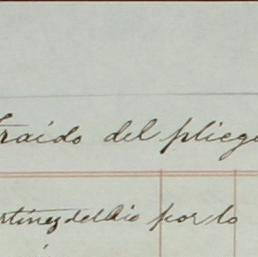 traido del pliego
rtinez del Rio por lo